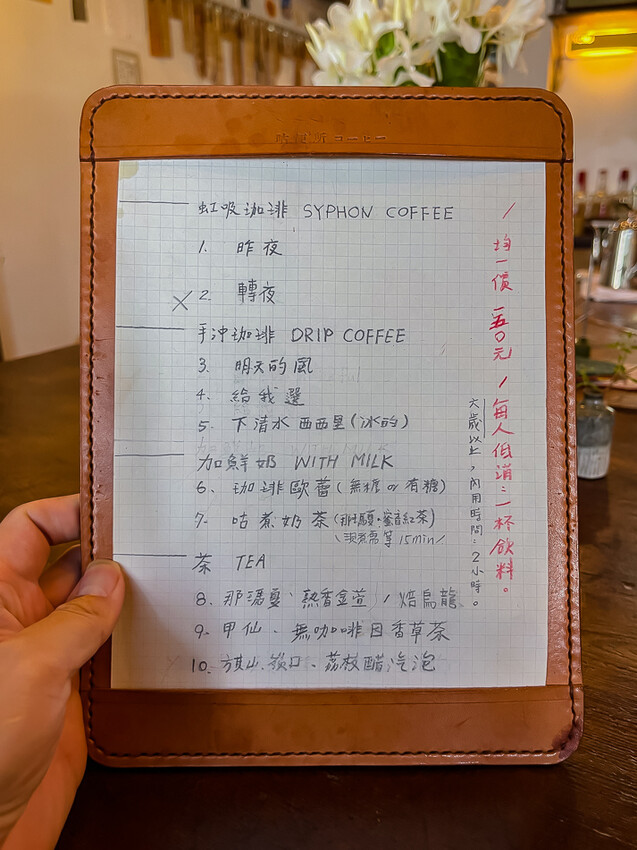 咕逆所 コーヒー
虹吸珈琲 SYPHON COFFEE
1. 昨夜
X 2. 轉夜
手沖珈琲 DRIP COFFEE
3. 明天的風
4. 給我選
5. 下清水西西里(冰的)
加鮮奶 WITH MILK
6. 珈琲歐蕾(無糖 or 有糖)
7. 咕煮奶茶(那瑪夏・蜜香紅茶)
\現煮需等 15min/
茶 TEA
8. 那瑪夏、熟香金萱 / 焙烏龍
9. 甲仙、無咖啡因香草茶
10. 旗山、嶺口、荔枝醋汽泡
/ 均一價 一五〇元 / 每人低消:一杯飲料。
六歲以上,內用時間:2小時。